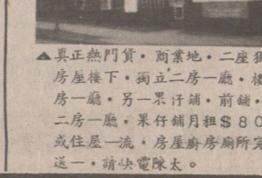 ▲真正熱門貨・商業地・二座獨
房屋樓下・獨立二房一廳・樓
房一廳・另一果仔鋪・前鋪・
二房一廳・果仔鋪月租＄８０
或住屋一流・房屋廚房厠所完
送一・請快電陳太。